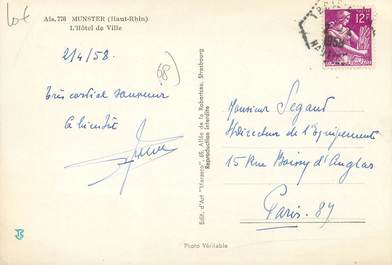 Lot
Als. 738 MUNSTER (Haut-Rhin)
L'Hôtel de Ville
2/4/58.
68)
Très cordial souvenir
A bientôt
Edit. d'Art "Marasco", 65, Allée de la Robertsau, Strasbourg
Reproduction interdite
12F
1958
Monsieur Segaud
Directeur de l'Equipement
15 Rue Boissy d'Anglas
Paris. 8y
Photo Véritable